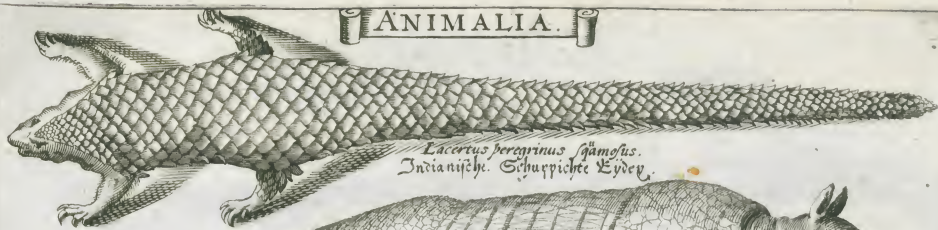 ANIMALIA.
Lacertus peregrinus sqamosus.
Indianische Schuppichte Eydex.